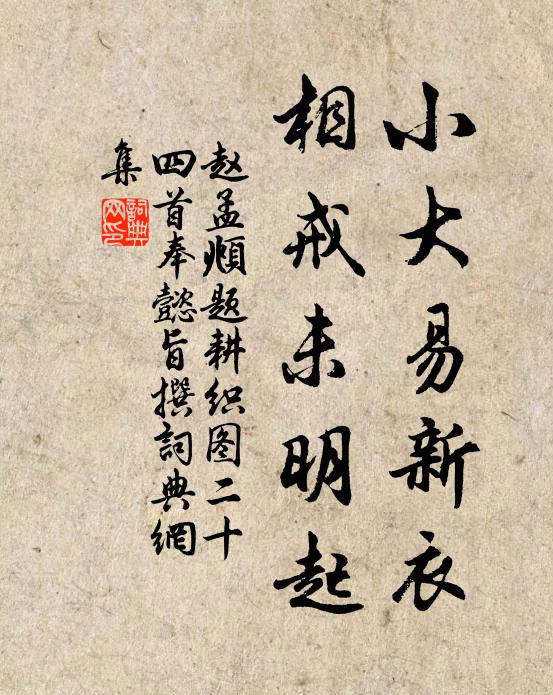 小大易新衣
相戒未明起
赵孟頫题耕织图二十
四首奉懿旨撰詞典網
集
詞典
网印